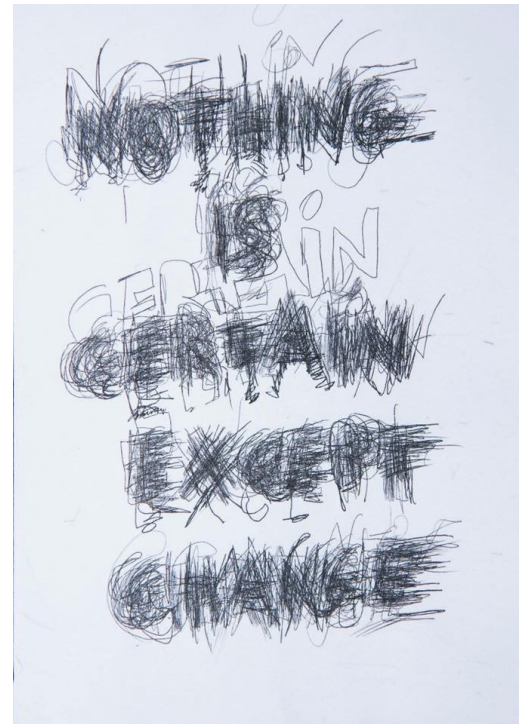 NOTHING
IS
CERTAIN
CERTAIN
EXCEPT
CHANGE